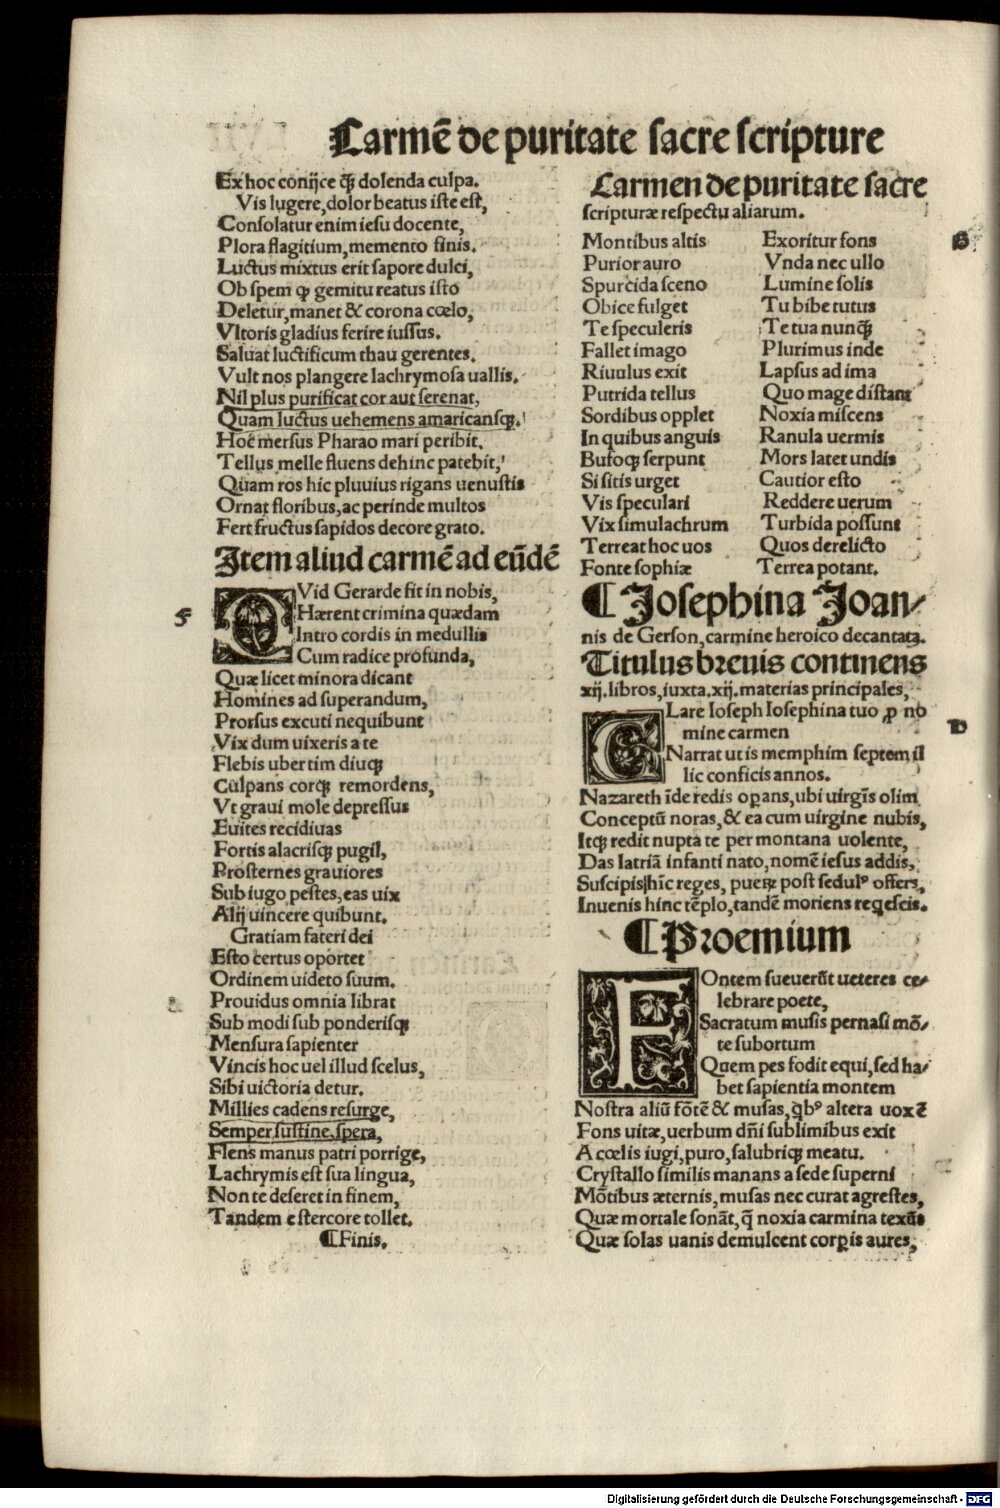 Carmē de puritate sacre scripture
Ex hoc conijce q̄ꝫ dolenda culpa.
Vis lugere, dolor beatus iste est,
Consolatur enim iesu docente,
Plora flagitium, memento finis.
Luctus mixtus erit sapore dulci,
Ob spem ꝙ gemitu reatus isto
Deletur, manet & corona cœlo,
Vltoris gladius ferire iussus.
Saluat luctificum thau gerentes.
Vult nos plangere lachrymosa uallis.
Nil plus purificat cor aut serenat,
Quam luctus uehemens amaricansqꝫ.
Hoc mersus Pharao mari peribit.
Tellus melle fluens dehinc patebit,
Quam ros hic pluuius rigans uenustis
Ornat floribus, ac perinde multos
Fert fructus sapidos decore grato.
Item aliud carmē ad eūdē
5
QVid Gerarde fit in nobis,
Hærent crimina quædam
Intro cordis in medullis
Cum radice profunda,
Quæ licet minora dicant
Homines ad superandum,
Prorsus excuti nequibunt
Vix dum uixeris a te
Flebis ubertim diuqꝫ
Culpans corqꝫ remordens,
Vt graui mole depressus
Euites recidiuas
Fortis alacrisqꝫ pugil,
Prosternes grauiores
Sub iugo pestes, eas uix
Alij uincere quibunt.
Gratiam fateri dei
Esto certus oportet
Ordinem uideto suum.
Prouidus omnia librat
Sub modi sub ponderisqꝫ
Mensura sapienter
Vincis hoc uel illud scelus,
Sibi uictoria detur.
Millies cadens resurge,
Semper sustine, spera,
Flens manus patri porrige,
Lachrymis est sua lingua,
Non te deseret in finem,
Tandem e stercore tollet.
¶Finis.
Carmen de puritate sacre
scripturæ respectu aliarum.
Montibus altis Exoritur fons
B
Purior auro Vnda nec ullo
Spurcida sceno Lumine solis
Obice fulget Tu bibe tutus
Te speculeris Te tua nunq̄ꝫ
Fallet imago Plurimus inde
Riuulus exit Lapsus ad ima
Putrida tellus Quo mage distant
Sordibus opplet Noxia miscens
In quibus anguis Ranula uermis
Bufoqꝫ serpunt Mors latet undis
Si sitis urget Cautior esto
Vis speculari Reddere uerum
Vix simulachrum Turbida possunt
Terreat hoc uos Quos derelicto
Fonte sophiæ Terrea potant.
¶ Josephina Joan⸗
nis de Gerson, carmine heroico decantata.
Titulus breuis continens
xij. libros, iuxta .xij. materias principales,
CLare Ioseph Iosephina tuo ꝓ no
D
mine carmen
Narrat ut is memphim septem il
lic conficis annos.
Nazareth īde redis oꝑans, ubi uirgīs olim
Conceptū noras, & ea cum uirgine nubis,
Itqꝫ redit nupta te per montana uolente,
Das latriā infanti nato, nomē iesus addis,
Suscipis hīc reges, pueꝝ post sedulꝰ offers,
Inuenis hinc tēplo, tandē moriens reqescis.
¶Proemium
FOntem sueuerūt ueteres ce⸗
lebrare poete,
Sacratum musis pernasi mō⸗
te subortum
Quem pes fodit equi, sed ha⸗
bet sapientia montem
Nostra aliū fōtē & musas, qbꝰ altera uox ē
Fons uitæ, uerbum dn̄i sublimibus exit
A cœlis iugi, puro, salubriqꝫ meatu.
Crystallo similis manans a sede superni
Mōtibus æternis, musas nec curat agrestes,
Quæ mortale sonāt, q̄ noxia carmina texūt
Quæ solas uanis demulcent corꝑis aures,
Digitalisierung gefördert durch die Deutsche Forschungsgemeinschaft - DFG